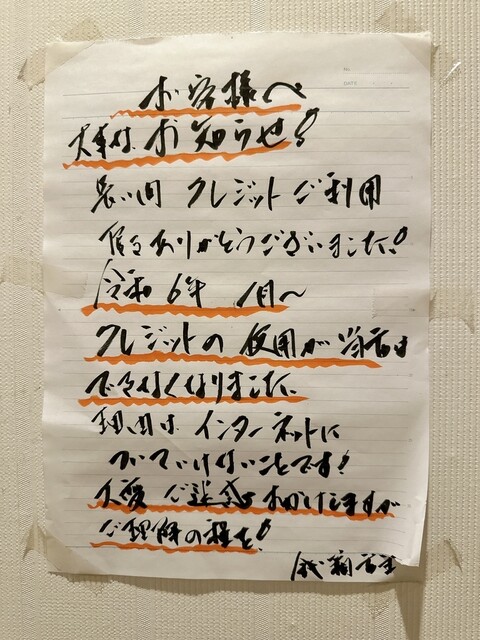 No.
DATE
お客様へ
大事なお知らせ!
長い間 クレジット ご利用
ありがとうございました!
令和6年 1月〜
クレジットの使用が当店は
できなくなりました
理由は インターネットに
ついていけないことです!
大変 ご迷惑おかけしますが
ご理解の程を!
店主